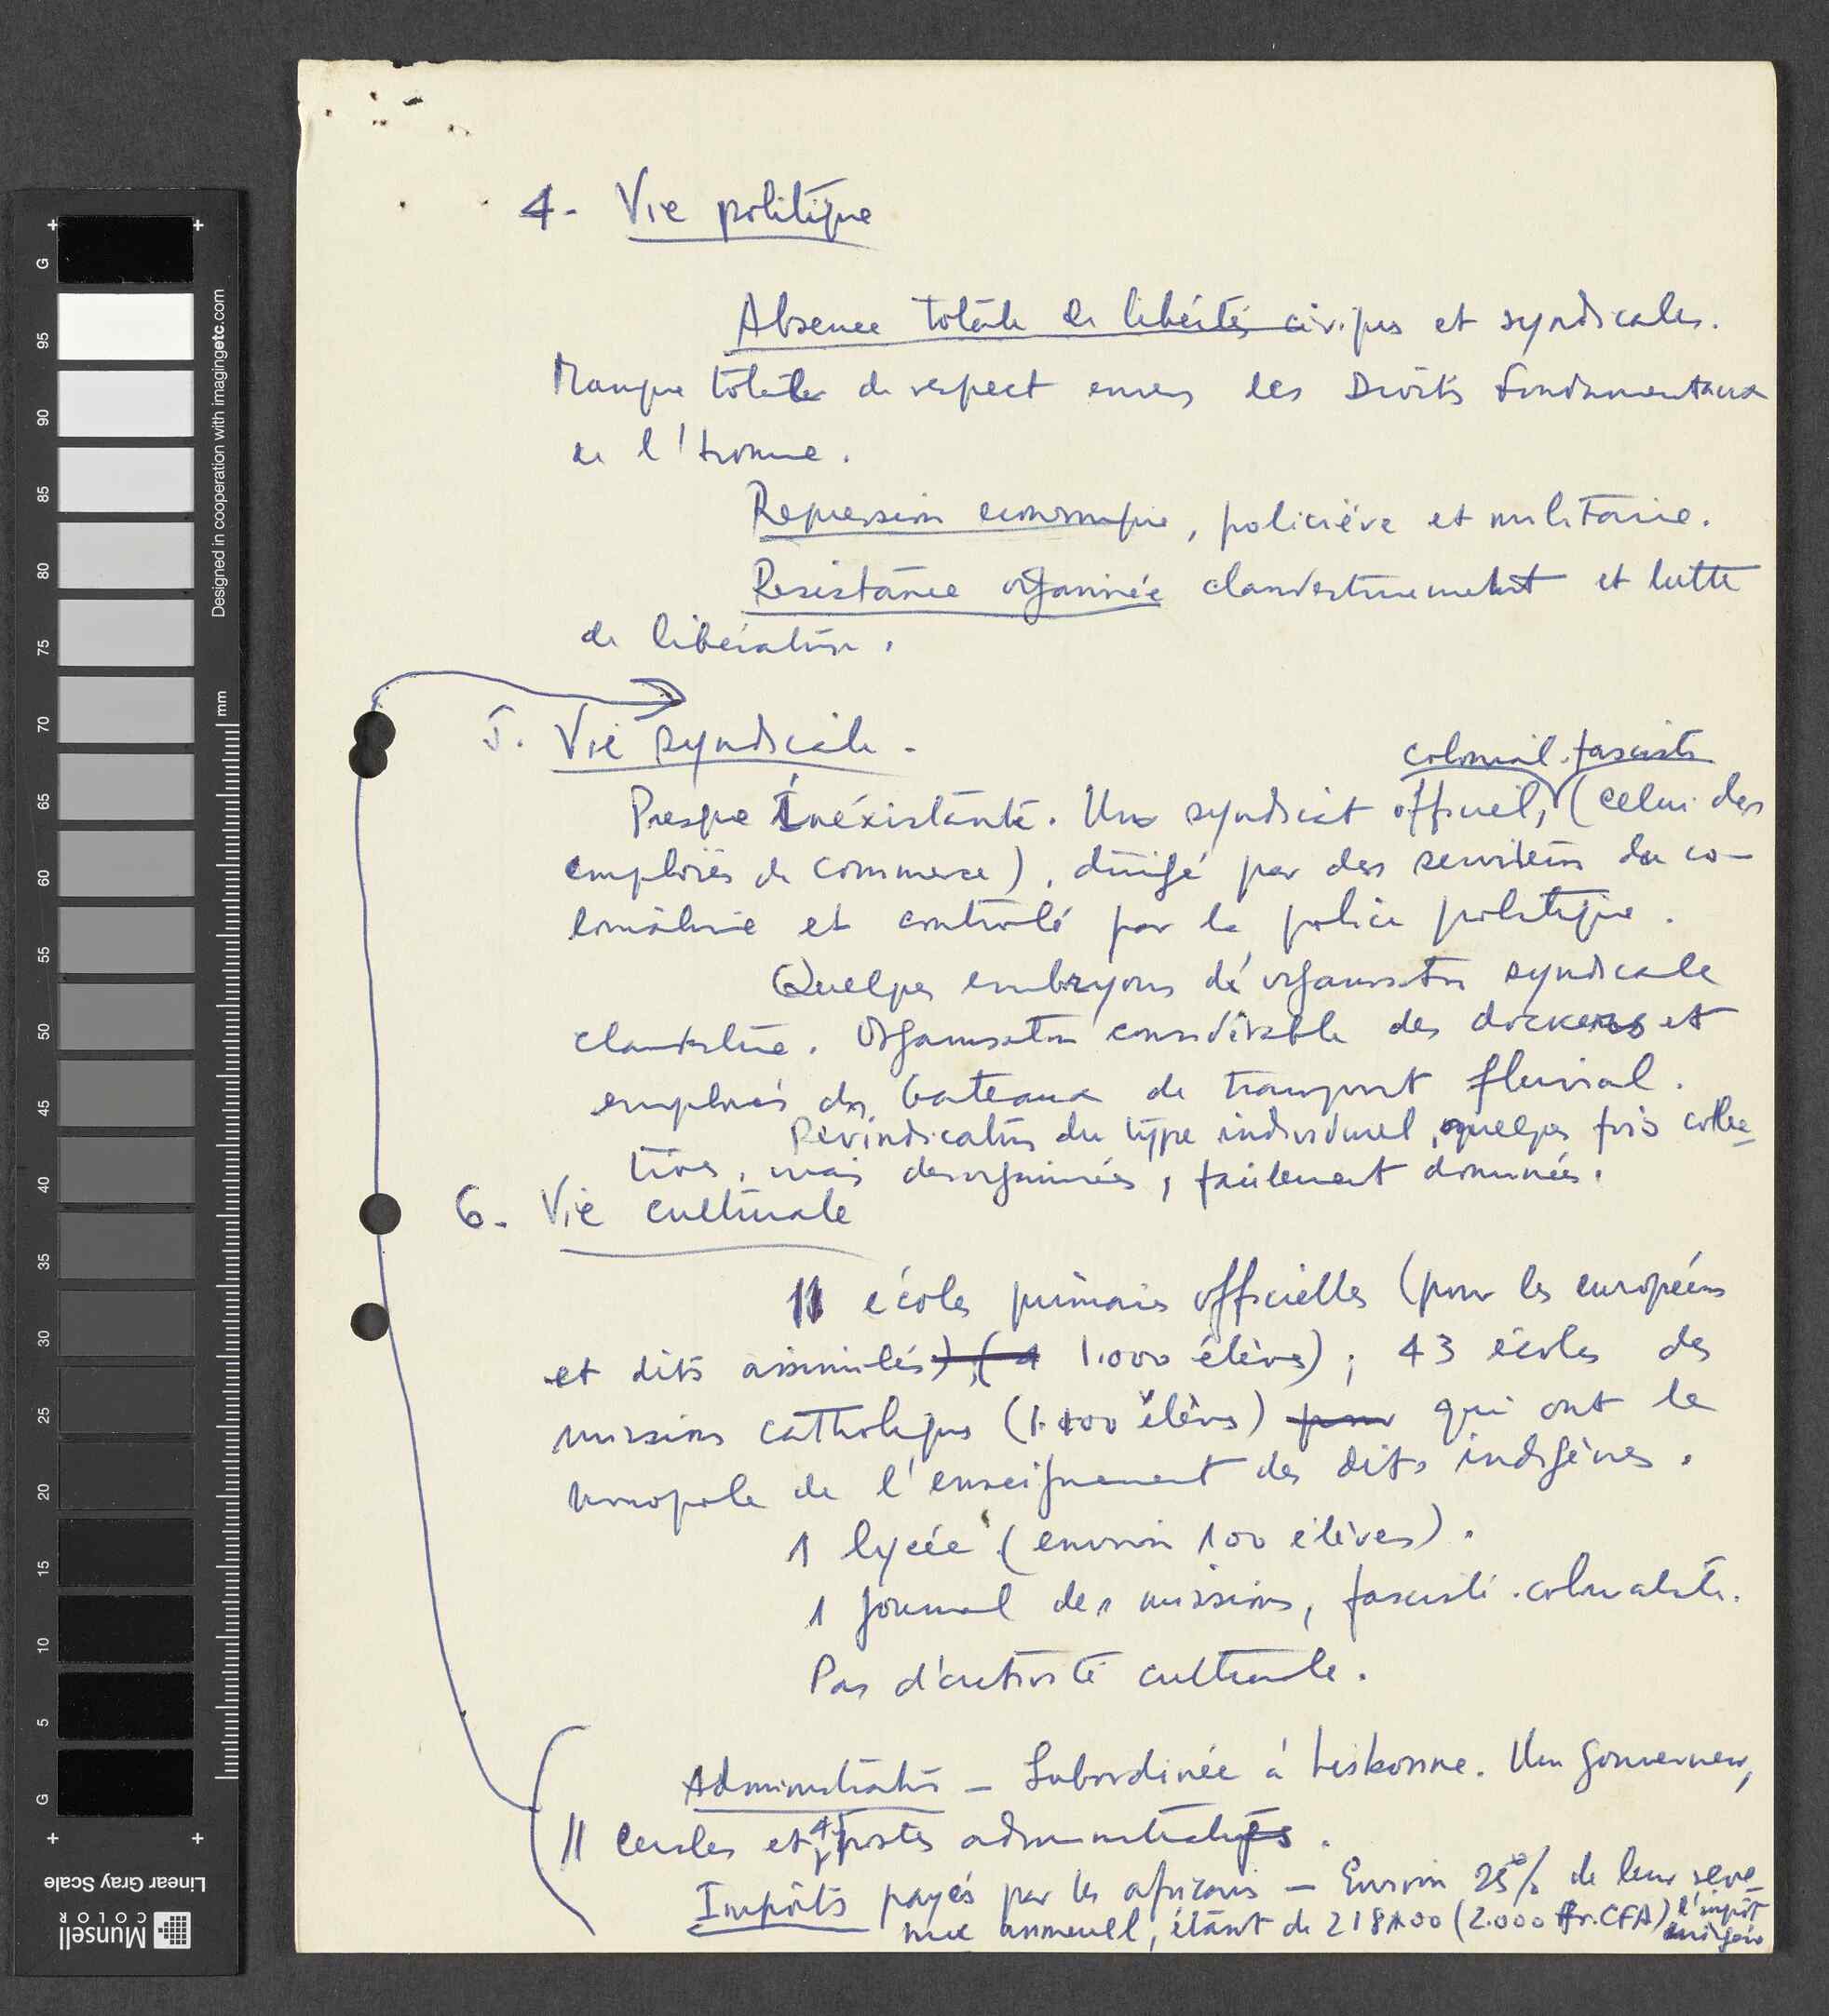 4. Vie politique
Absence totale de libertés civiques et syndicales.
Manque totale de respect envers les Droits fondamentaux
de l'homme.
Repression economique, policière et militaire.
Resistance organisée clandestinement et lutte
de libération.
5. Vie syndicale.
colonial-fasciste
Presque inéxistante. Un syndicat officiel, (celui des
employés de commerce), dirigé par des serviteurs du co-
lonialisme et contrôlé par la police politique.
Quelques embryons d'organisation syndicale
clandestine. Organisation considérable des dockers et
employés des bateaux de transport fluvial.
Revindications du type individuel, quelques fois collec-
tives, mais desorganisées, facilement dominées.
6. Vie culturale
11 écoles primaires officielles (pour les européens
et dits assimilés), ( 1.000 élèves); 43 écoles des
missions catholiques (1.100 élèves) pour qui ont le
monopole de l'enseignement des dits indigènes.
1 lycée (environ 100 élèves).
1 journal des missions, fasciste-colonialiste.
Pas d'activité culturale.
Administration - Subordinée à Lisbonne. Un Gouverneur,
11 cercles et postes administratifs.
Impôts payés par les africains - Environ 25% de leur reve-
nue annuell, étant de 218$00 (2.000 fr. CFA) l'impôt
indigène
G
95
90
85
80
75
70
65
60
55
50
45
40
35
30
25
20
15
10
5
G
mm
Designed in cooperation with imagingetc.com
Linear Gray Scale
Munsell
COLOR